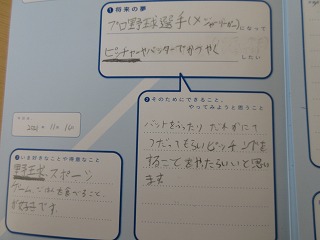 ①将来の夢
プロ野球選手(メジャーリーガー)になって
ピッチャーやバッターでかつやく
したい
②そのためにできること、
やってみようと思うこと
バットをふったり だれかに
てつだってもらいピッチングを
することをやったらいいと思い
ます
③いま好きなことや得意なこと
野球、スポーツ
ゲーム、ごはんを食べること
が好きです。